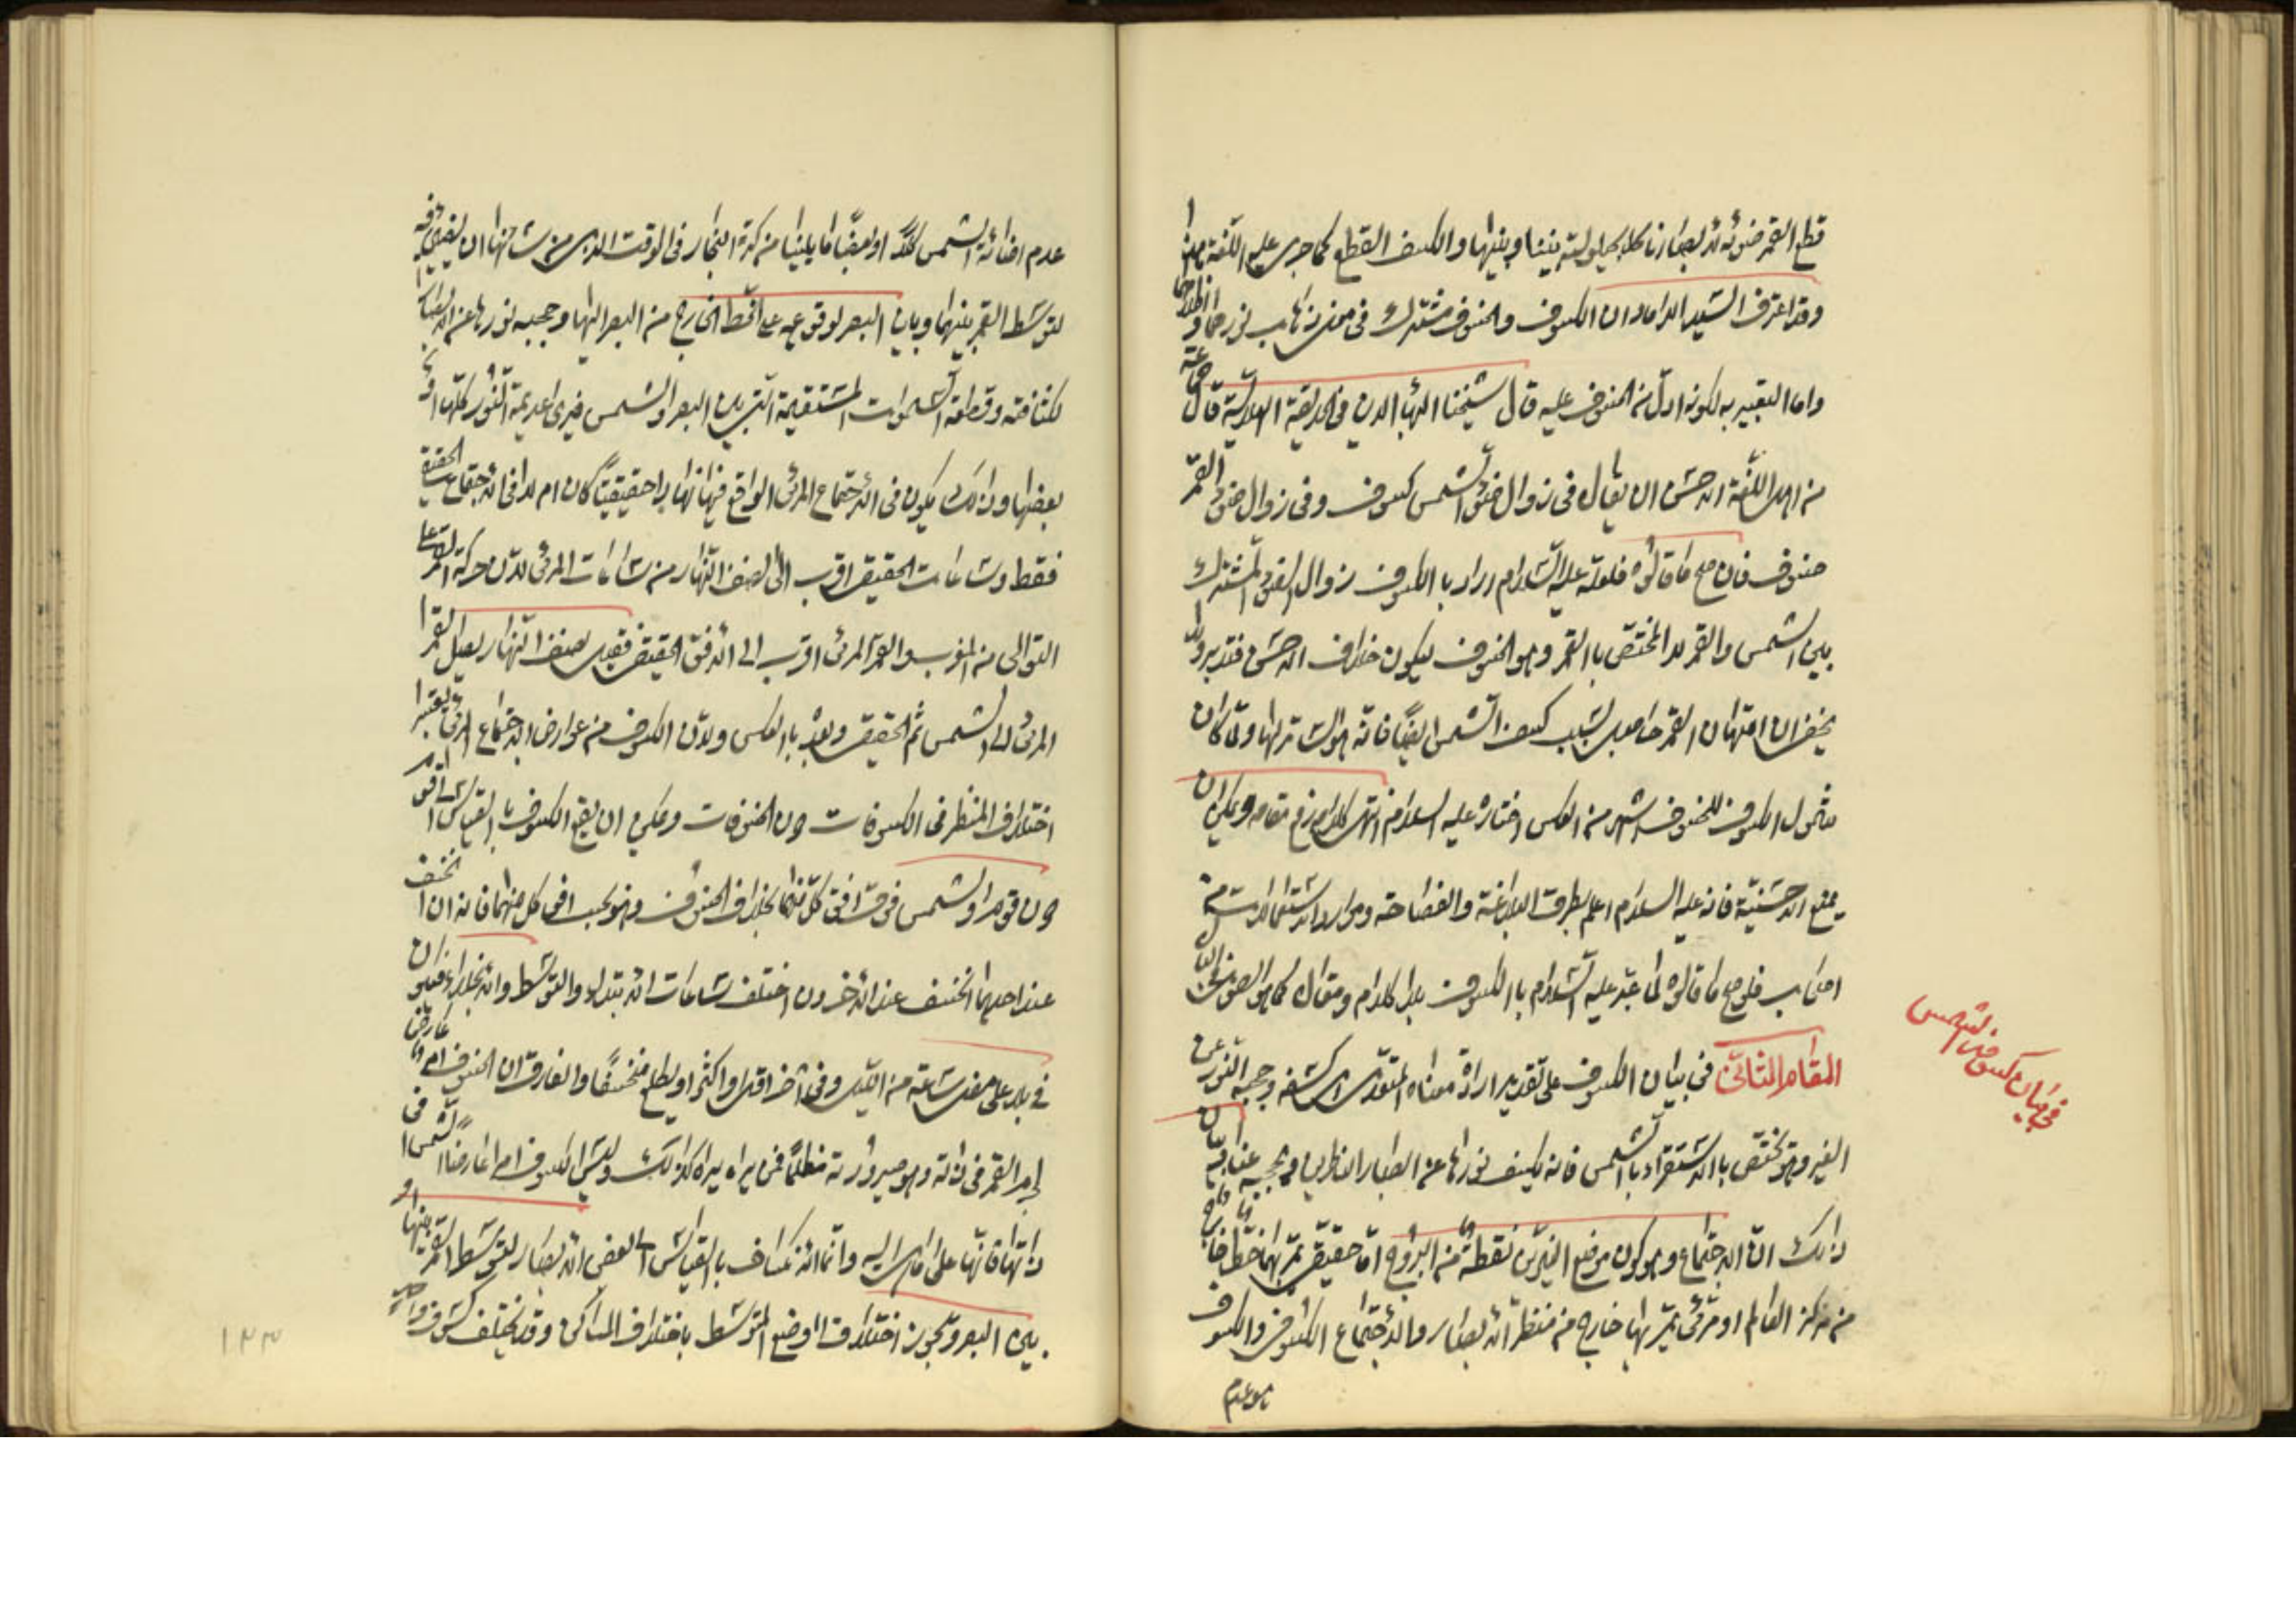 قطع القمر ضوئه لابصارنا كلا بحيلولته بيننا وبينها والكسف القطع كما جرى عليه اللغة
وقد اعترف السيد الداماد ان الكسوف والخسوف مشترك فى معنى ذهاب نورهما و
واما التعبير به لكونه ادل من الخسوف عليه قال شيخنا البهاء الدين فى الحديقة الهلالية قال جماعة
من اهل اللغة الاحسن ان يقال فى زوال ضوء الشمس كسوف وفى زوال ضوء القمر
خسوف فان صح ما قالوه فلعله عليه السلام اراد بالكسوف زوال الضوء المشترك
بين الشمس والقمر لا المختص بالقمر وهو الخسوف ليكون خلاف الاحسن فتدبر ولا
يخفى ان امتهان القمر حاصل بسبب كسف الشمس ايضا فانه هو الساتر لها ولما كان
شمول الكسوف للخسوف اشهر من العكس اختاره عليه السلام انتهى كلامه رفع مقامه ويمكن ان
يمنع الاحسنية فانه عليه السلام اعلم بطرق البلاغة والفصاحة وموارد الاستعمالات من
اصحاب فلو صح ما قالوه لما عبر عليه السلام بالكسوف بلا كلام ومقال كما هو
المقام الثانى فى بيان الكسوف على تقدير ارادة معناه المتعدى اى كشفه وحجبه النور عن
الغير وهو مختص بالاستقراء بالشمس فانه يكسف نورها عن ابصار الناظرين ويحجبه عنا بيان
ذالك ان الاجتماع وهو كون موضع النيرين نقطة من البروج اما حقيقى يمر بهما خط خارج
من مركز العالم او مرئى يمر بها خارج من منظر الابصار والاجتماع الكسوفى والكسوف
هو عدم
فى بيان كسوف الشمس
عدم اضائة الشمس كلا او بعضا ما يلينا من كرة البخار فى الوقت الذى من شانها ان يضيئ فيه
لتوسط القمر بينهما وبين البصر لوقوعه على الخط الخارج من البصر اليها وحجبه نورها عن الابصار
لكثافته وقطعه السموات المستقيمة التى بين البصر والشمس فيرى عديمة النور كلها او
بعضها وذالك يكون فى الاجتماع المرئى الواقع فيها نهارا حقيقيا كان ام لا فى الاجتماع الحقيقى
فقط وساعات الحقيقى اقرب الى نصف النهار من ساعات المرئى لان حركة القمر على
التوالى من المغرب والقمر المرئى اقرب الى الافق الحقيقى فقبل نصف النهار يصل القمر
المرئى الى الشمس ثم الحقيقى وبعده بالعكس ولان الكسوف من عوارض الاجتماع المرئى يعتبر
اختلاف المنظر فى الكسوفات دون الخسوفات ويمكن ان يقع الكسوف بالقياس الى قوم
دون قوم والشمس فوق افق كل منهما بخلاف الخسوف وهو بحسب افق كل منهما فانه ان انخسف
عند احدهما انخسف عند الاخر وان اختلف ساعات الابتداء والتوسط والانجلاء
فى بلد على مضى ساعة من الليل وفى اخر اقل او اكثر او يطلع منخسفا والفارق ان الخسوف امر عارض
لجرم القمر فى ذاته وهو صيرورته مظلما فمن يراه يراه كذالك وليس الكسوف امرا عارضا للشمس فى
ذاتها فانها على ما هى اليه وانما الانكساف بالقياس الى بعض الابصار لتوسط القمر بينها و
بين البصر ويجوز اختلاف اوضاع المتوسط باختلاف المساكن وقد يختلف كسوف واحد
١٣٣